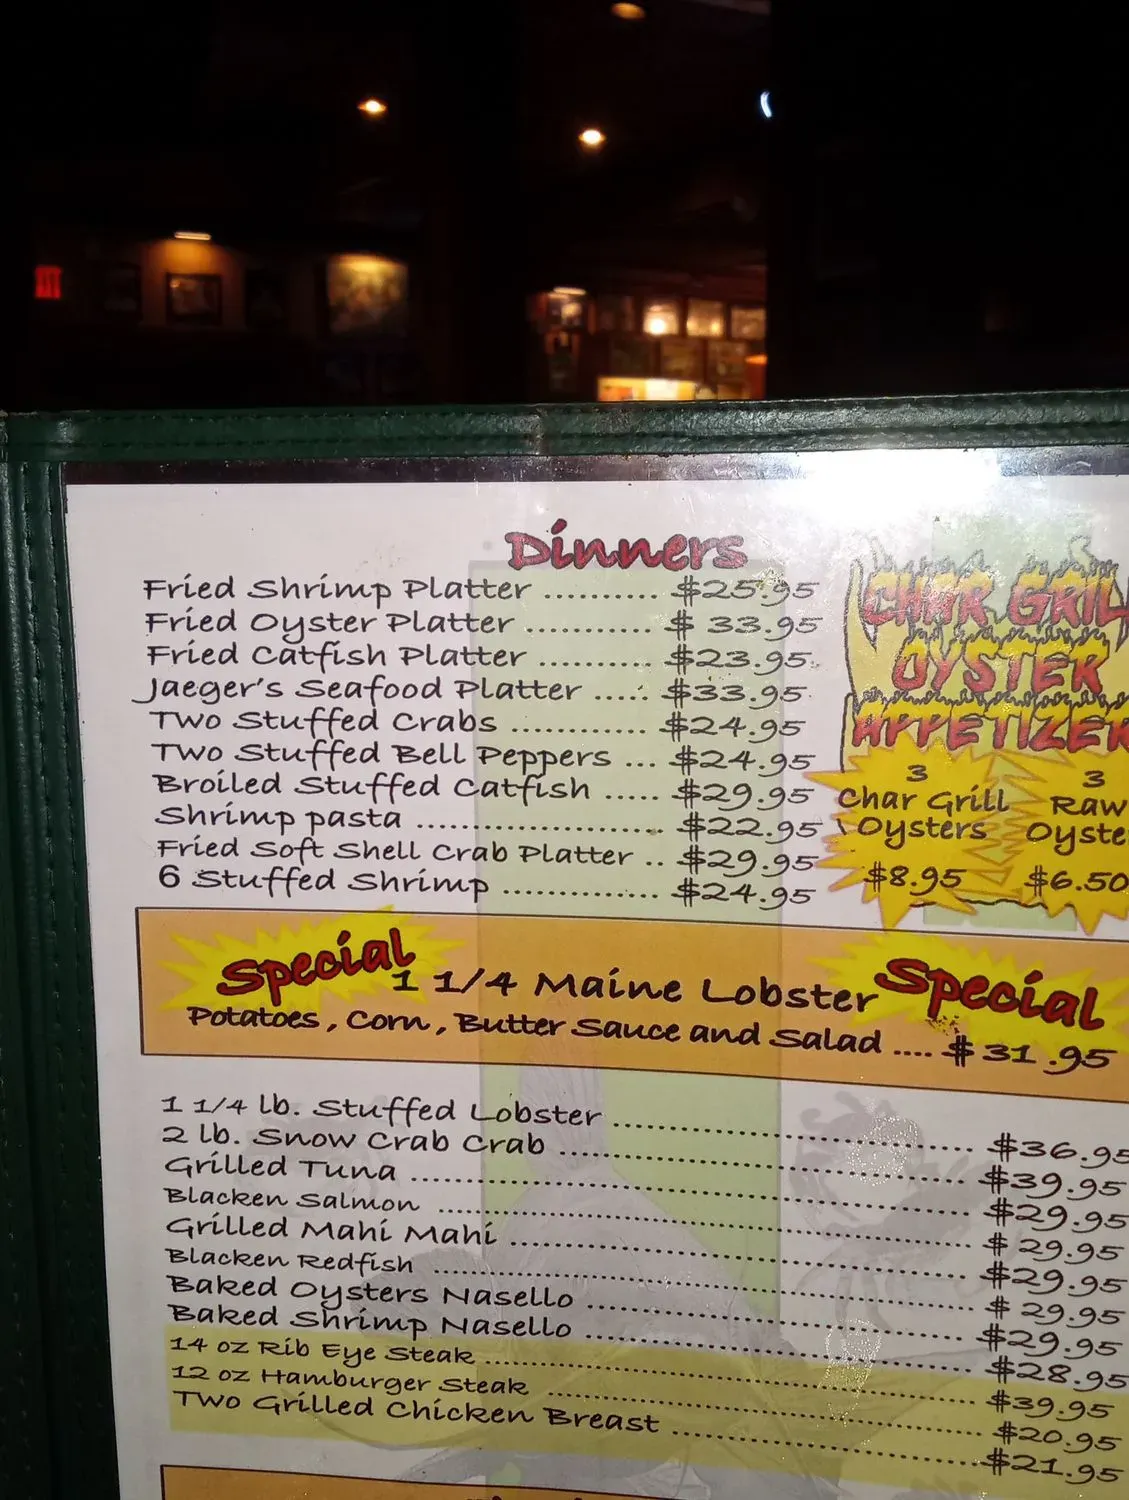 Dinners
Fried Shrimp Platter .......... $25.95
Fried Oyster Platter ........... $ 33.95
Fried Catfish Platter .......... $23.95
Jaeger's Seafood Platter ..... $33.95
Two Stuffed Crabs ............ $24.95
Two Stuffed Bell Peppers ... $24.95
Broiled Stuffed Catfish ..... $29.95
Shrimp pasta ..................... $22.95
Fried Soft Shell Crab Platter .. $29.95
6 Stuffed Shrimp ............. $24.95
CHAR GRILL
OYSTER
APPETIZER
3
Char Grill
Oysters
$8.95
3
Raw
$6.50
Special
1 1/4 Maine Lobster
Special
Potatoes, Corn, Butter Sauce and Salad .... $ 31.95
1 1/4 lb. Stuffed Lobster ........ $36.95
2 lb. Snow Crab Crab ........ $39.95
Grilled Tuna ........ $29.95
Blacken Salmon ........ $ 29.95
Grilled Mahi Mahi ........ $29.95
Blacken Redfish ........ $ 29.95
Baked Oysters Nasello ........ $29.95
Baked Shrimp Nasello ........ $28.95
14 oz Rib Eye Steak ........ $39.95
12 oz Hamburger Steak ........ $20.95
Two Grilled Chicken Breast ........ $21.95